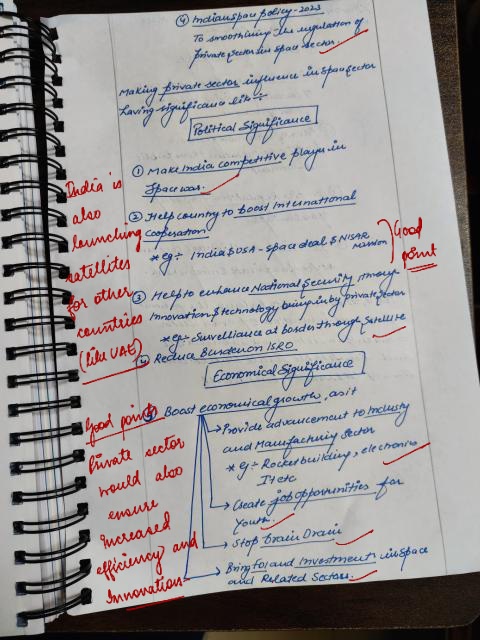 ④ Indian space policy - 2023
To smoothining the regulation of
private sector in space sector.
Making private sector influence in space sector
having significance like ÷
Political Significance
① Make India competitive player in
Space was.
② Help country to boost International
Cooperation
* eg ÷ India & USA - Space deal & NISAR
mission
Good
point
③ Help to enhance National Security through
Innovation & technology bring in by private sector
* eg ÷ Surveillance at border through Satellite
④ Reduce Burden on ISRO
India is
also
launching
satellites
for other
countries
(like UAE)
Economical Significance
Boost economical growth, as it
→ Provide advancement to Industry
and Manufacturing Sector
* eg ÷ Rocket building, electronics
IT etc
→ Create job opportunities for
Youth.
→ Stop Brain Drain
→ Bring for and investment in space
and Related Sectors.
Good point
Private sector
would also
ensure
increased
efficiency and
Innovation